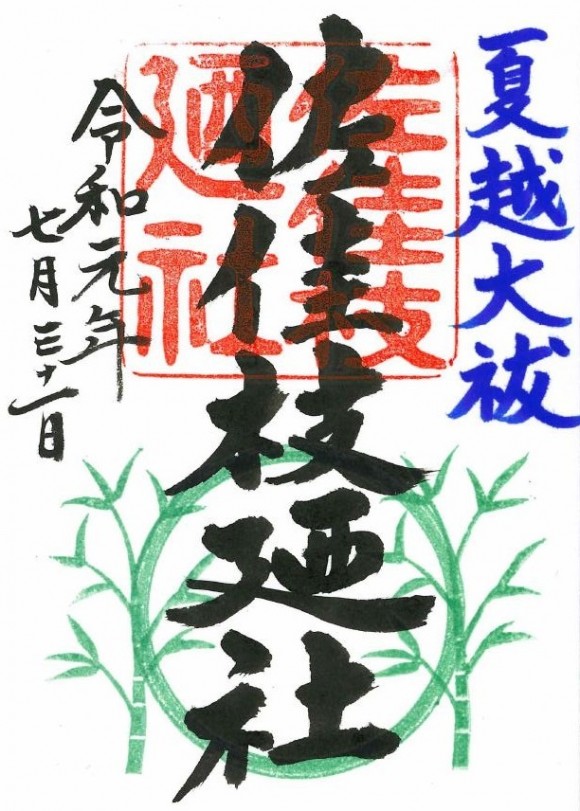 夏越大祓
佐佳枝廼社
佐佳枝
廼社
令和元年
七月三十一日